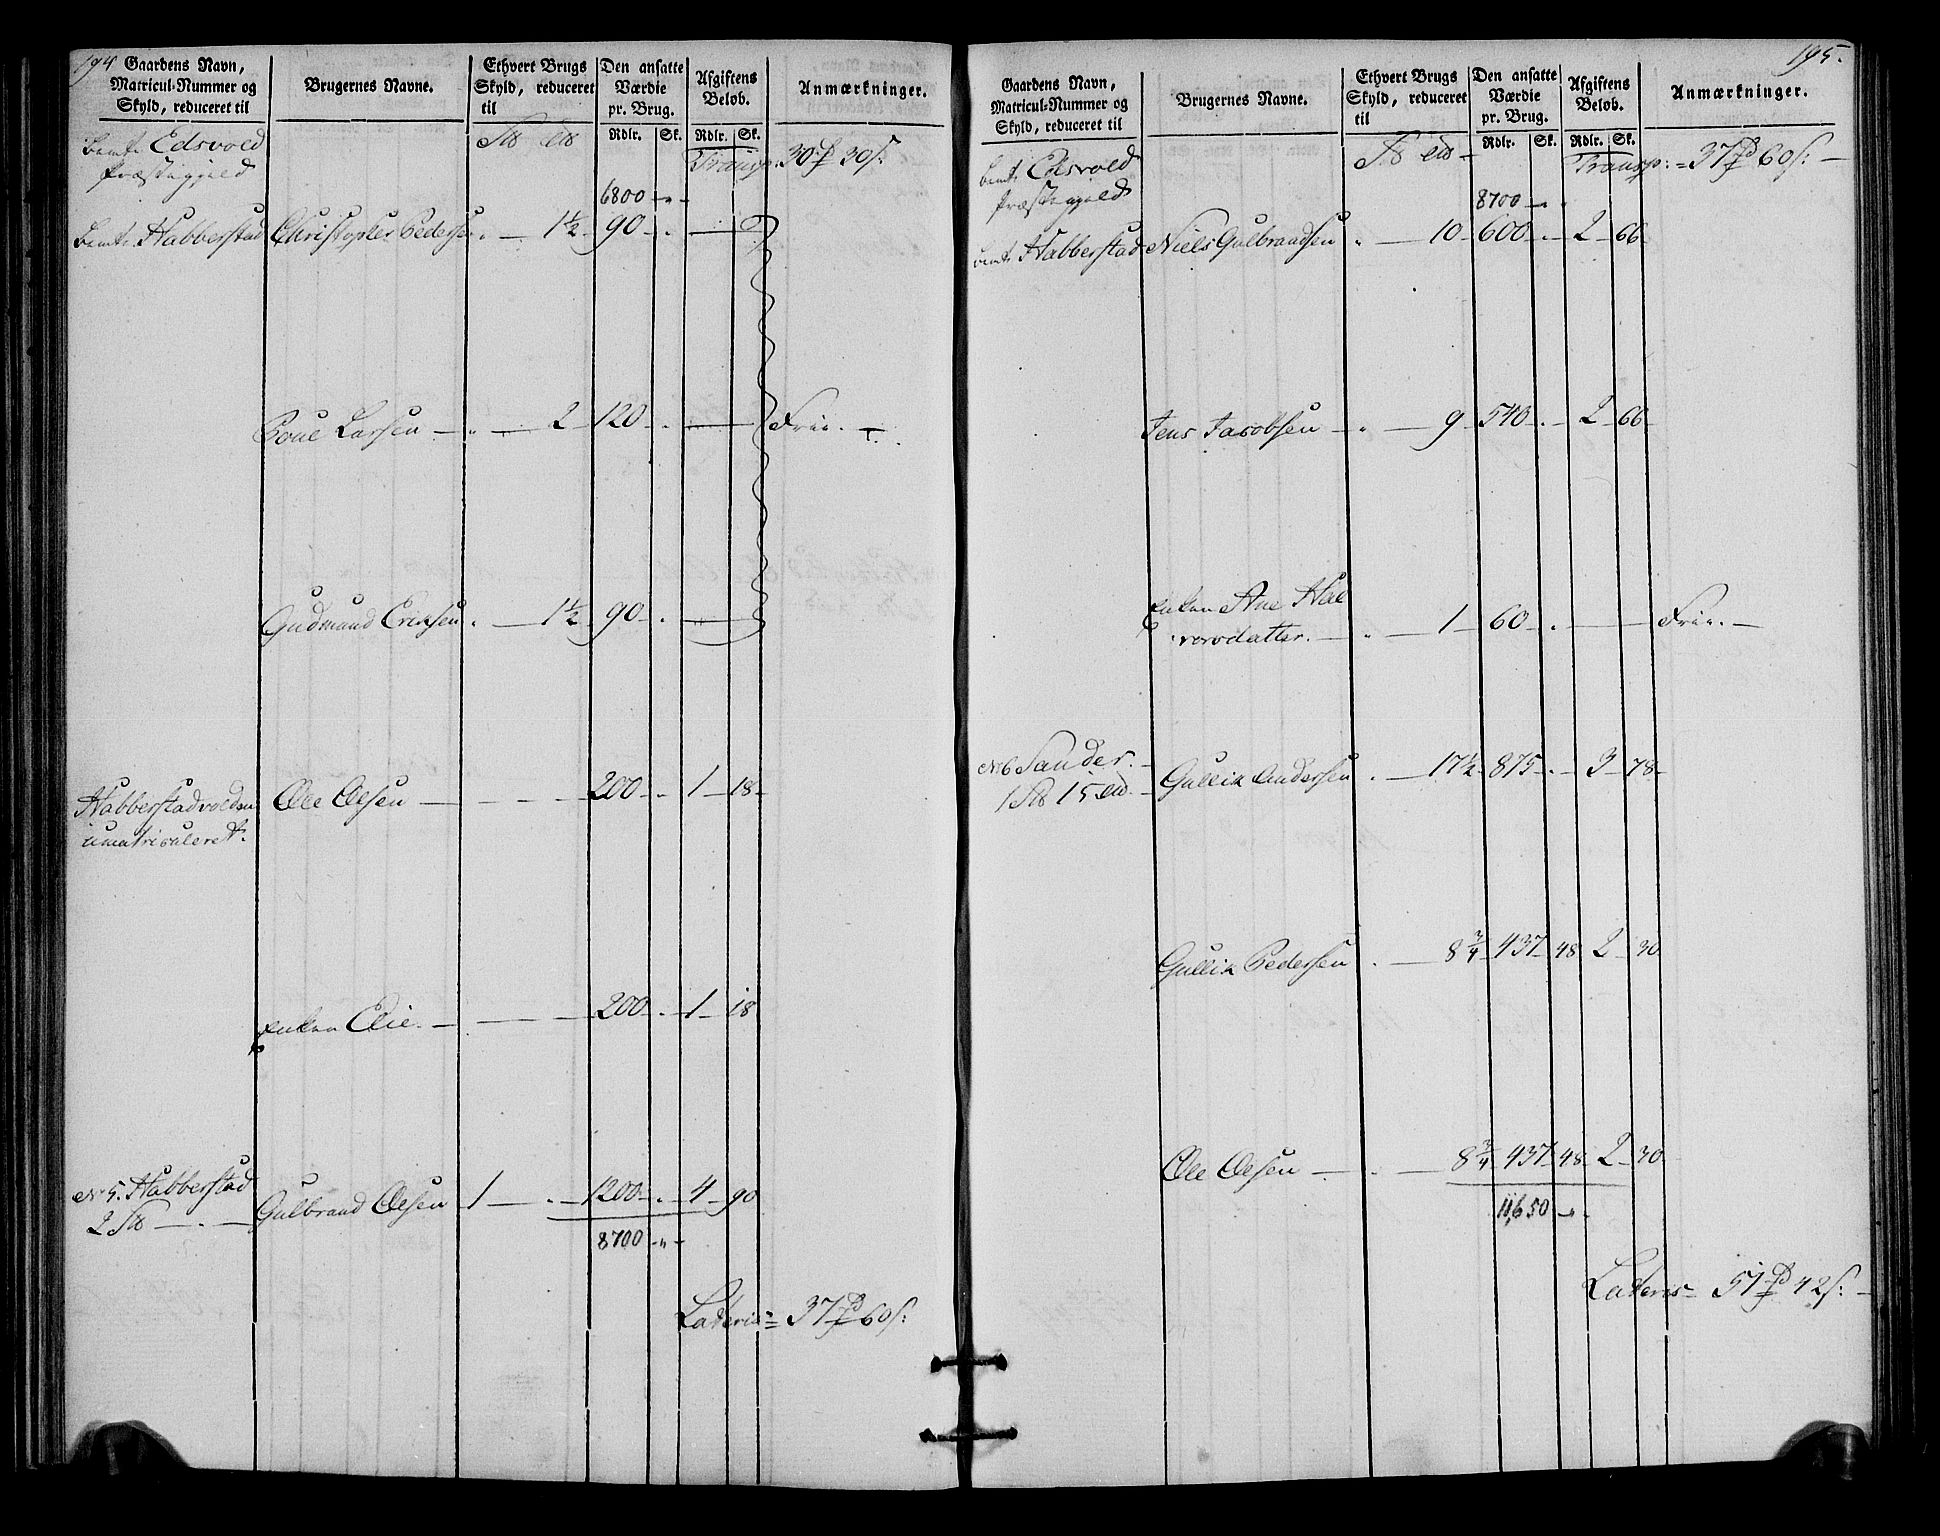 194
Gaardens Navn, Matricul-Nummer og Skyld, reduceret til
Brugernes Navne.
Ethvert Brugs Skyld, reduceret til
Den ansatte Værdie pr. Brug. Rdlr. Sk.
Afgiftens Beløb. Rdlr. Sk.
Anmærkninger.
bemt. Edsvold
Præstegield
Transp: 30 30 s:
6800 - " -
bemt. Habberstad Christopher Pedersen " 1½ 90 - "
Poul Larsen " 2 120 - " Frie.
Gudmund Eriksen " 1½ 90 - "
Habberstadvolden Ole Olsen 200 - " 1 - 18
umatriculeret.
Enken Elie. 200 - " 1 - 18
No 5. Habberstad
2 - " - Gulbrand Olsen 1 - " 1200 - " 4 - 90
8700 - " -
Lateris = 37 60 s:
195.
Gaardens Navn, Matricul-Nummer og Skyld, reduceret til
Brugernes Navne.
Ethvert Brugs Skyld, reduceret til
Den ansatte Værdie pr. Brug. Rdlr. Sk.
Afgiftens Beløb. Rdlr. Sk.
Anmærkninger.
bemt. Edsvold
Præstegield
Transp: = 37 60 s:
8700 - "
bemt. Habberstad Niels Gulbrandsen " 10 600 - 2 - 66
Jens Jacobsen " 9 540 - " 2 - 66
Enken Ane Hal
vorsdatter. " 1 60 - " Frie.
No 6 Sander.
1 15 Gullik Andersen " 17½ 875 - " 3 - 78
Gullik Pedersen " 8¾ 437 - 48 2 - 30
Ole Olsen " 8¾ 437 - 48 2 - 30
11,650 - "
Lateris = 51 42 s: